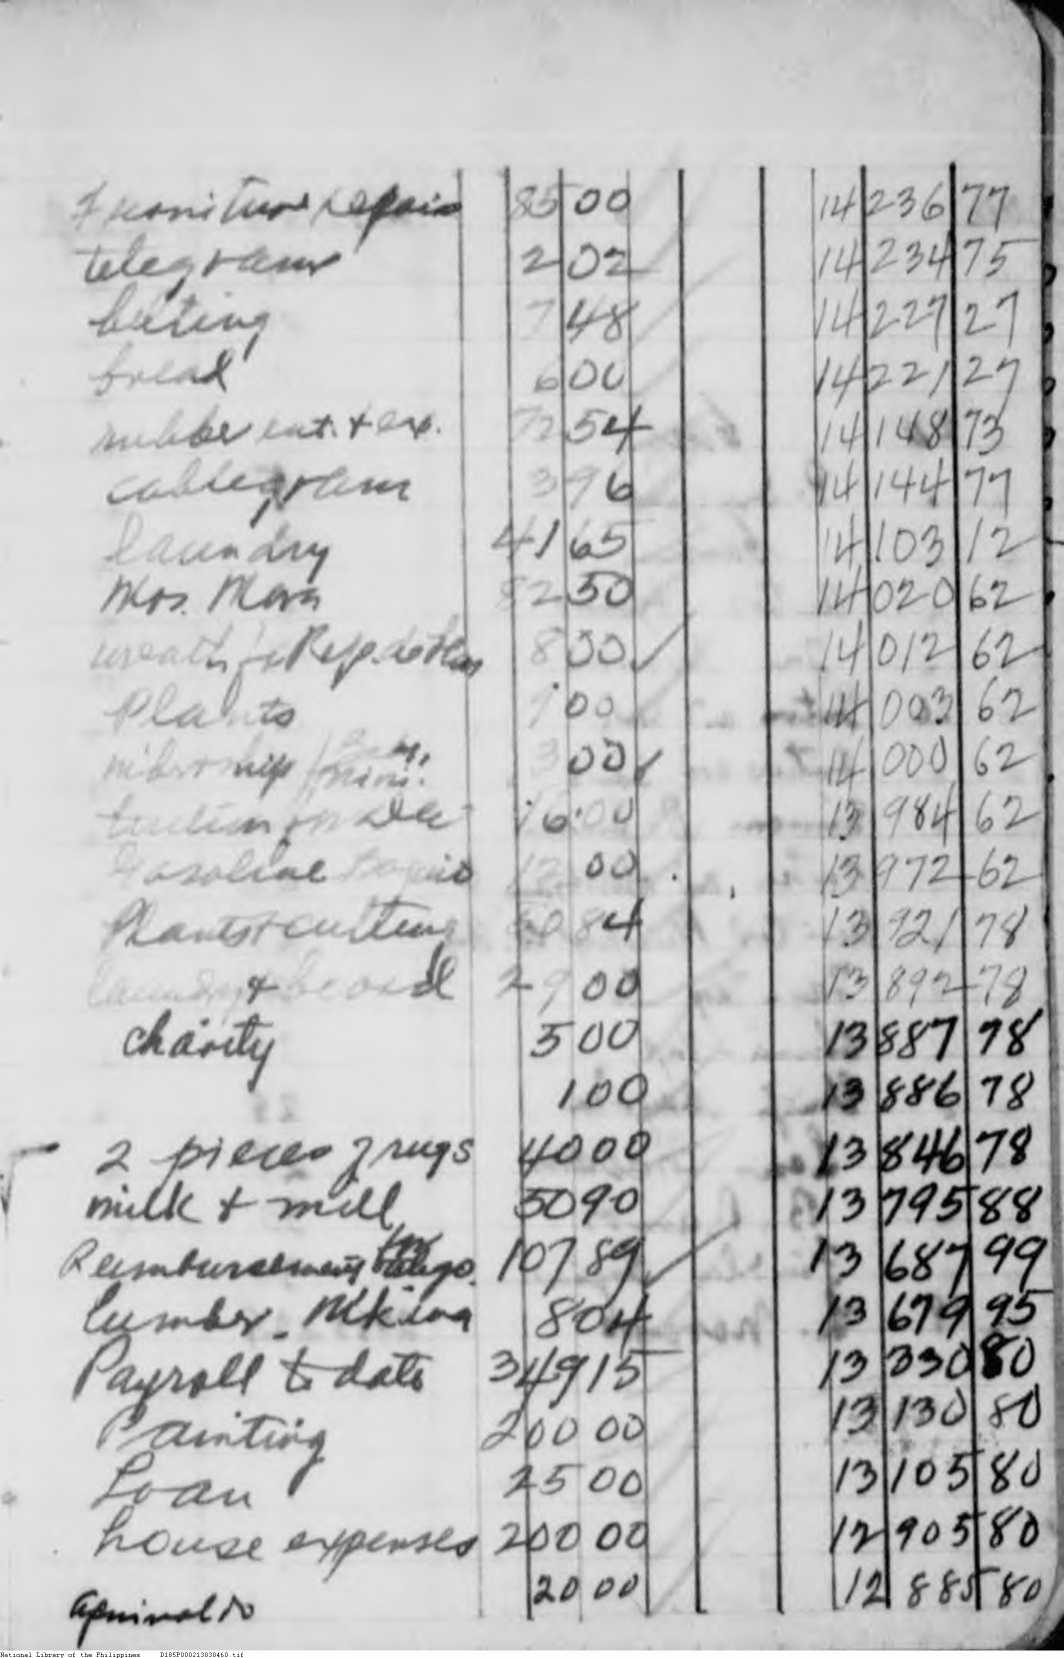 Furniture repair 85 00 14 236 77
telegrams 2 02 14 234 75
belting 7 48 14 227 27
bread 6 00 14 221 27
rubber & exp. 72 54 14 148 73
cablegram 3 96 14 144 77
laundry 41 65 14 103 12
Mrs. Mora 82 50 14 020 62
wreath 8 00 14 012 62
Plants 9 00 14 003 62
3 00 14 000 62
16 00 13 984 62
Gasoline Baguio 12 00 13 972 62
Plants & cutting 50 84 13 921 78
laundry & board 29 00 13 892 78
charity 5 00 13 887 78
1 00 13 886 78
2 pieces of rugs 40 00 13 846 78
milk & mill 50 90 13 795 88
Reimbursement 107 89 13 687 99
lumber - Mkina 8 04 13 679 95
Payroll to date 349 15 13 330 80
Painting 200 00 13 130 80
Loan 25 00 13 105 80
house expenses 200 00 12 905 80
20 00 12 885 80
Aguinaldo
National Library of the Philippines D185P000213030460.tif